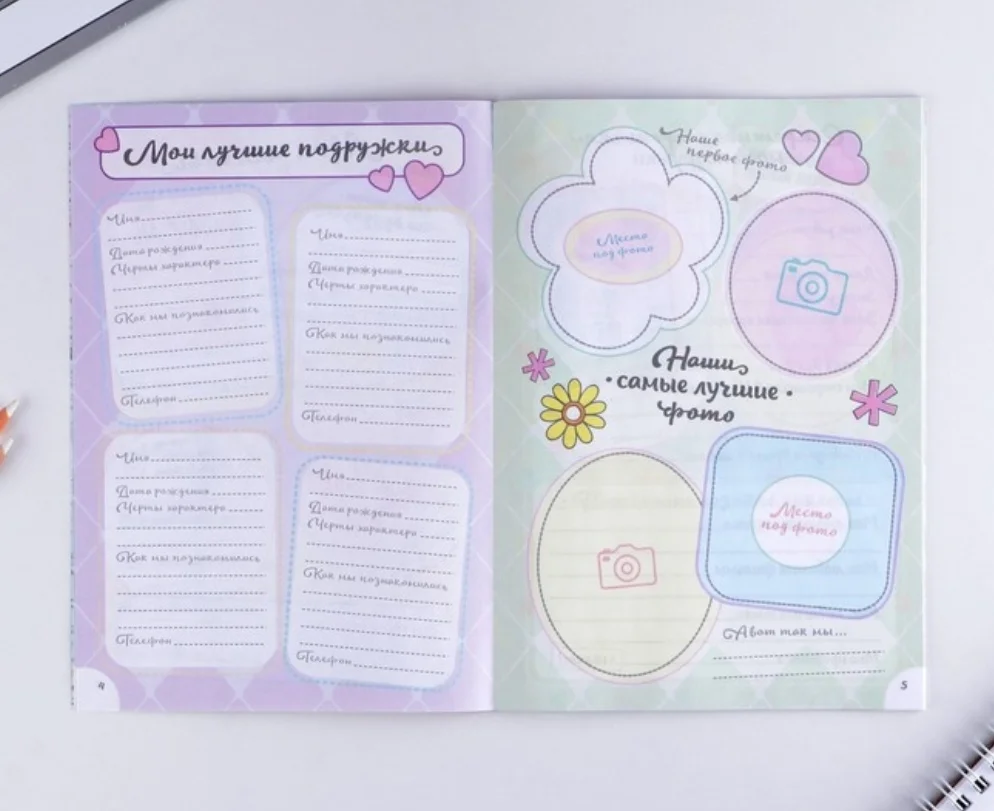 Мои лучшие подружки
Имя
Дата рождения
Черты характера
Как мы познакомились
Телефон
Имя
Дата рождения
Черты характера
Как мы познакомились
Телефон
Имя
Дата рождения
Черты характера
Как мы познакомились
Телефон
Имя
Дата рождения
Черты характера
Как мы познакомились
Телефон
4
Наше
первое фото
Место
под фото
Наши
• самые лучшие •
фото
Место
под фото
А вот так мы...
5